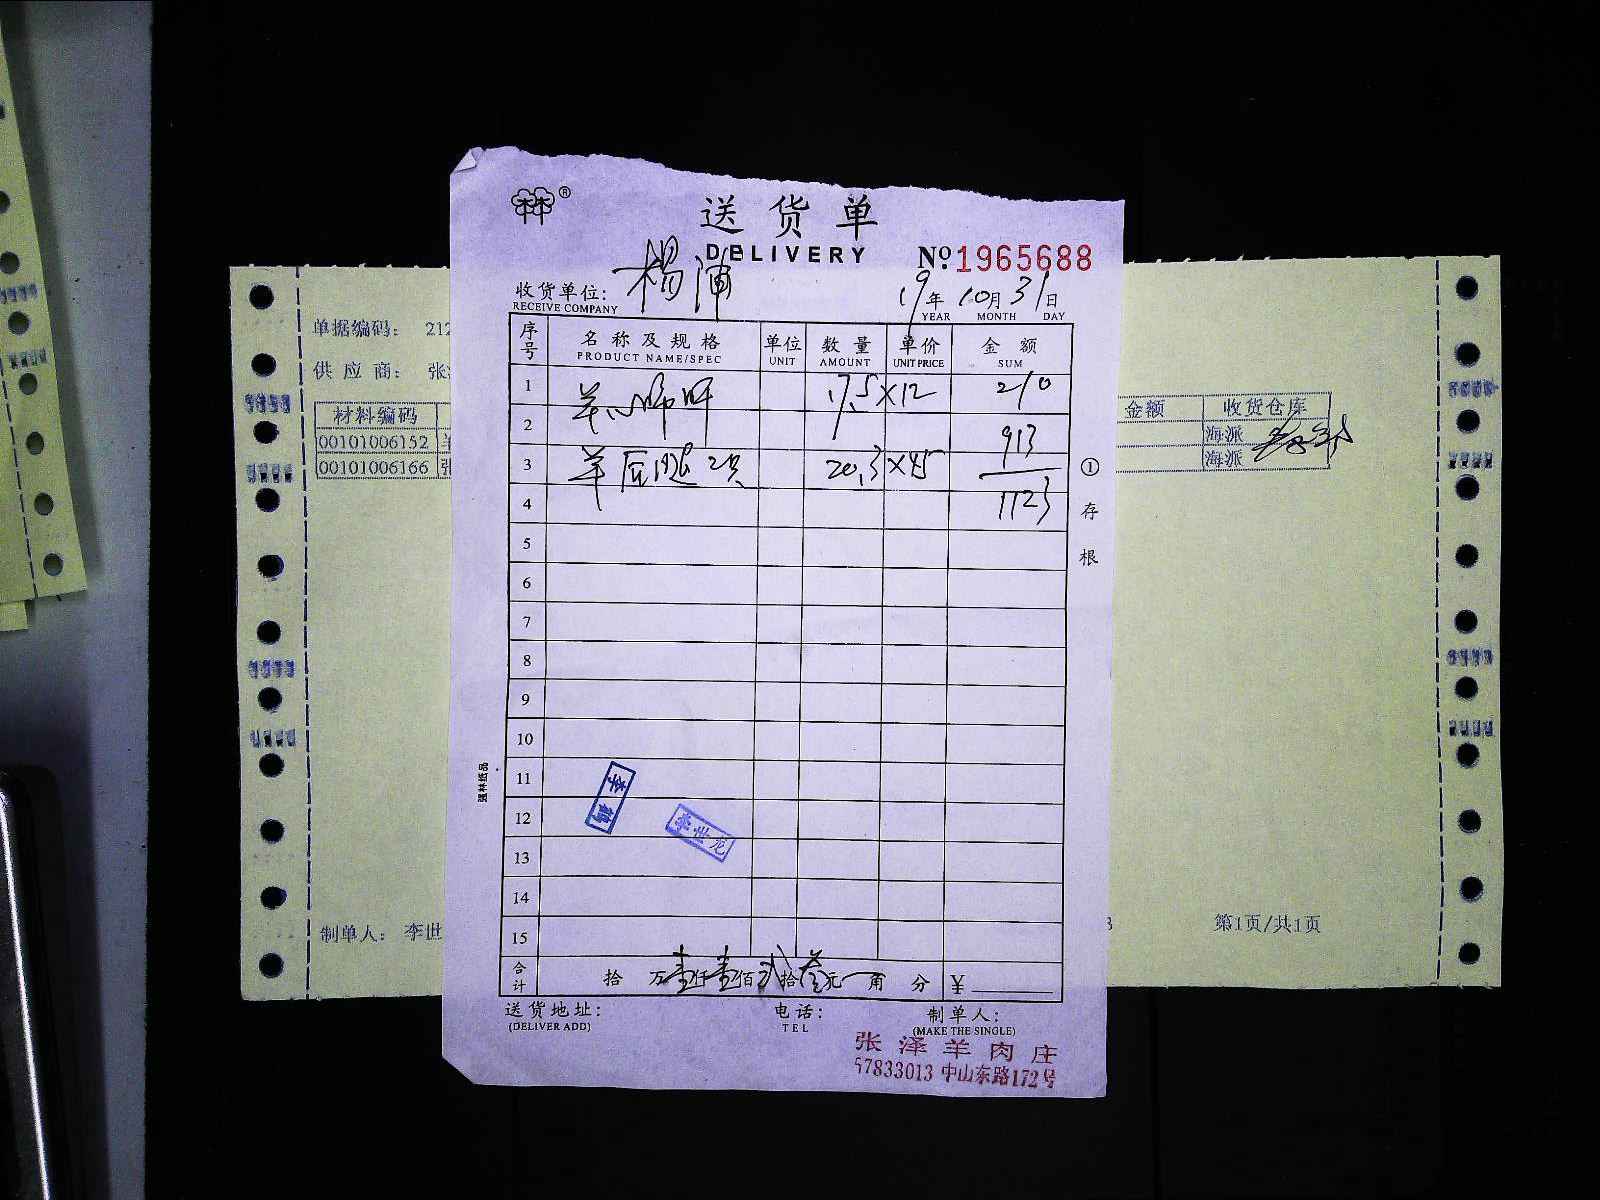 送货单
DELIVERY
№ 1965688
收货单位: 杨浦
RECEIVE COMPANY
19年 10月 31日
YEAR MONTH DAY
序号 名称及规格 单位 数量 单价 金额
PRODUCT NAME/SPEC UNIT AMOUNT UNIT PRICE SUM
1 羊心肺肝 17.5 ×12 210
2 913
3 羊后腿 2只 20.3 ×45
4 1123
5
6
7
8
9
10
11
12
13
14
15
李鹤
李世龙
合计 拾 万壹仟壹佰贰拾叁元 角 分 ¥
送货地址: 电话: 制单人:
(DELIVER ADD) TEL (MAKE THE SINGLE)
张泽羊肉庄
57833013 中山东路172号
①存根
强林纸品
单据编码: 212
供应商: 张
材料编码
00101006152 羊
00101006166 张
制单人: 李世
金额 收货仓库
海派
海派
第1页/共1页